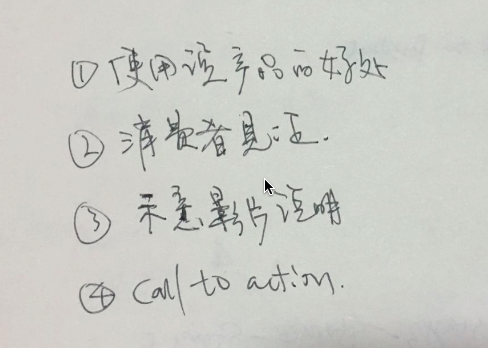 ① 使用该产品的好处
② 消费者见证.
③ 示意影片说明
④ Call to action.